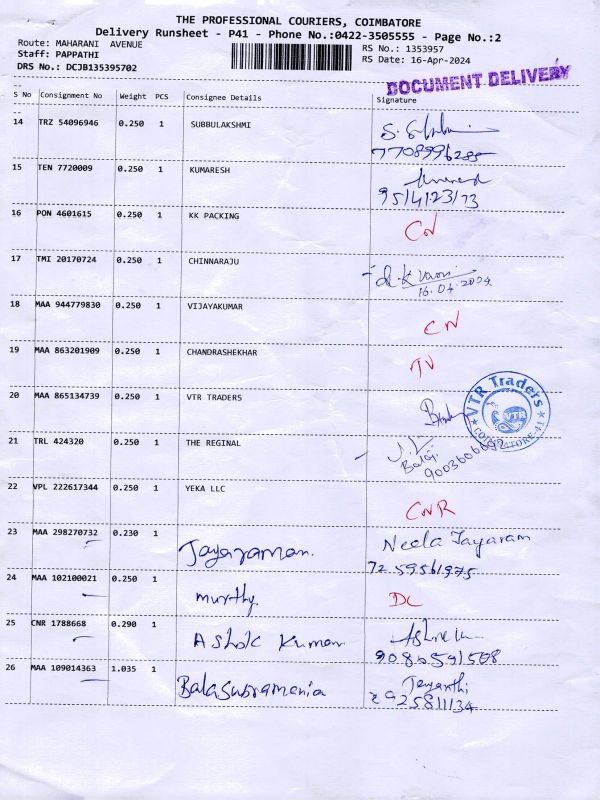 THE PROFESSIONAL COURIERS, COIMBATORE
Delivery Runsheet - P41 - Phone No.:0422-3505555 - Page No.:2
Route: MAHARANI AVENUE RS No.: 1353957
Staff: PAPPATHI RS Date: 16-Apr-2024
DRS No.: DCJB135395702
DOCUMENT DELIVERY
S No Consignment No Weight PCS Consignee Details Signature
14 TRZ 54096946 0.250 1 SUBBULAKSHMI
7708996285
15 TEN 7720009 0.250 1 KUMARESH
9514123173
16 PON 4601615 0.250 1 KK PACKING CN
17 TMI 20170724 0.250 1 CHINNARAJU
16.04.2024
18 MAA 944779830 0.250 1 VIJAYAKUMAR CN
19 MAA 863201909 0.250 1 CHANDRASHEKHAR
20 MAA 865134739 0.250 1 VTR TRADERS
VTR Traders
VTR
COIMBATORE-41
21 TRL 424320 0.250 1 THE REGINAL
Balaji
22 VPL 222617344 0.250 1 YEKA LLC CNR
23 MAA 298270732 0.230 1 Jayaraman. Neela Jayaram
7259561975
24 MAA 102100021 0.250 1 murthy. DC
25 CNR 1788668 0.290 1 Ashok Kumar
9080591508
26 MAA 109014363 1.035 1 Balasubramania Jayanthi
8925811134